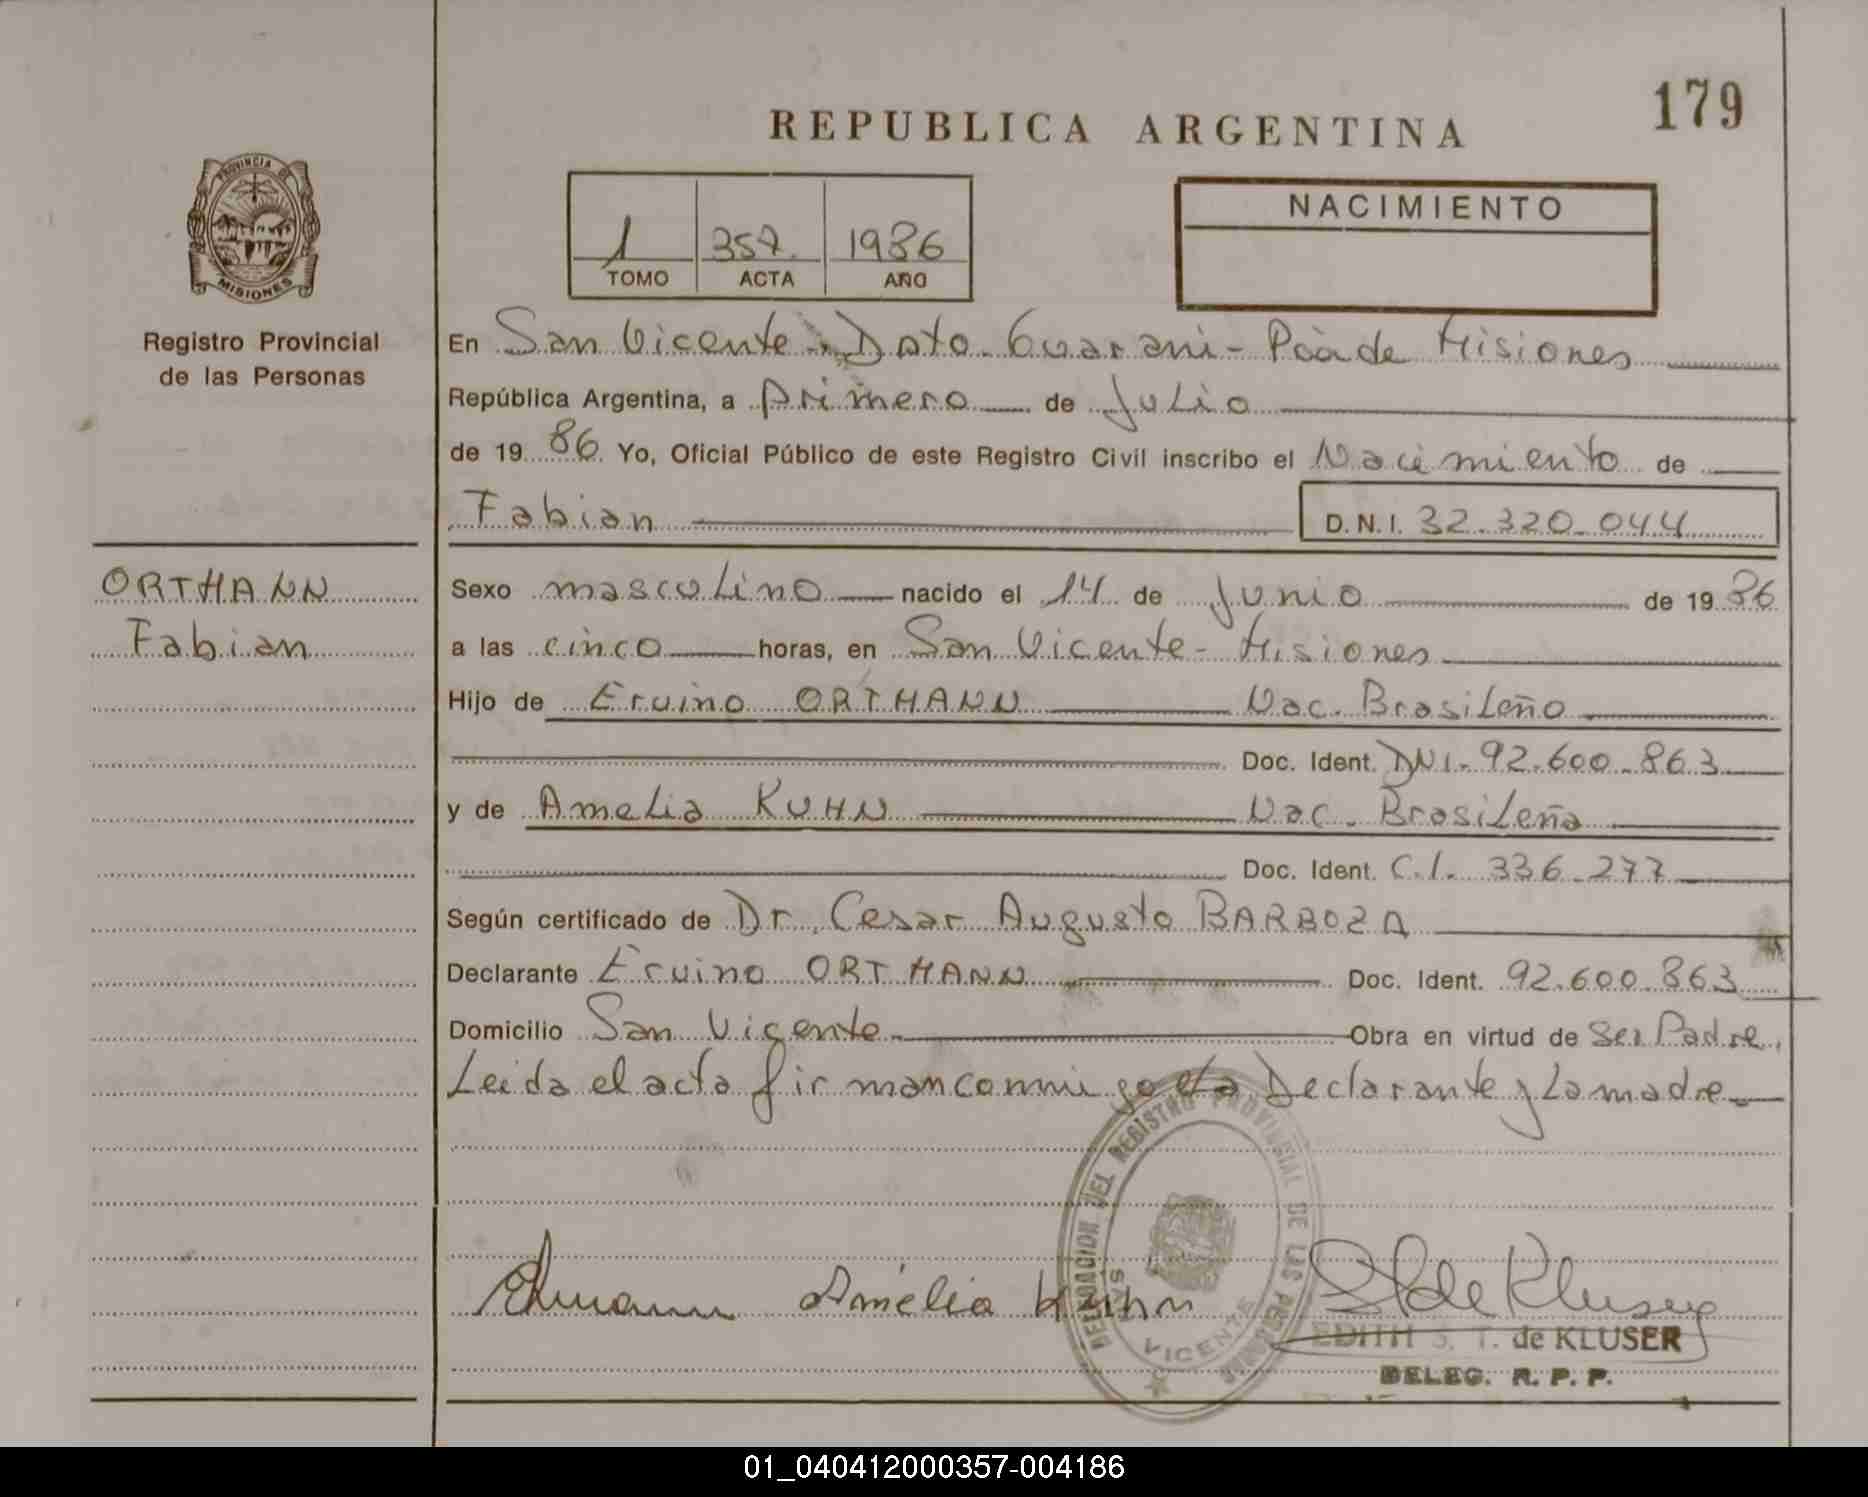 179
REPUBLICA ARGENTINA
PROVINCIA DE
MISIONES
Registro Provincial
de las Personas
1 357. 1986
TOMO ACTA AÑO
NACIMIENTO
En San Vicente - Dpto. Guarani - Pcia de Misiones
República Argentina, a primero de Julio
de 19 86 Yo, Oficial Público de este Registro Civil inscribo el Nacimiento de
Fabian D.N.I. 32.320.044
ORTHANN
Fabian
Sexo masculino nacido el 14 de Junio de 19 86
a las cinco horas, en San Vicente - Misiones
Hijo de Ervino ORTHANN Nac. Brasileño
Doc. Ident. DNI. 92.600.863
y de Amelia KUHN Nac. Brasileña
Doc. Ident. C.I. 336.277
Según certificado de Dr. Cesar Augusto BARBOZA
Declarante Ervino ORTHANN Doc. Ident. 92.600.863
Domicilio San Vicente Obra en virtud de ser Padre.
Leida el acta firman conmigo el Declarante y La madre
DELEGACION DEL REGISTRO PROVINCIAL DE LAS PERSONAS
VICENTE
Amélia Kuhn
de Kluser
EDITH S. T. de KLUSER
DELEG. R. P. P.
01_040412000357-004186